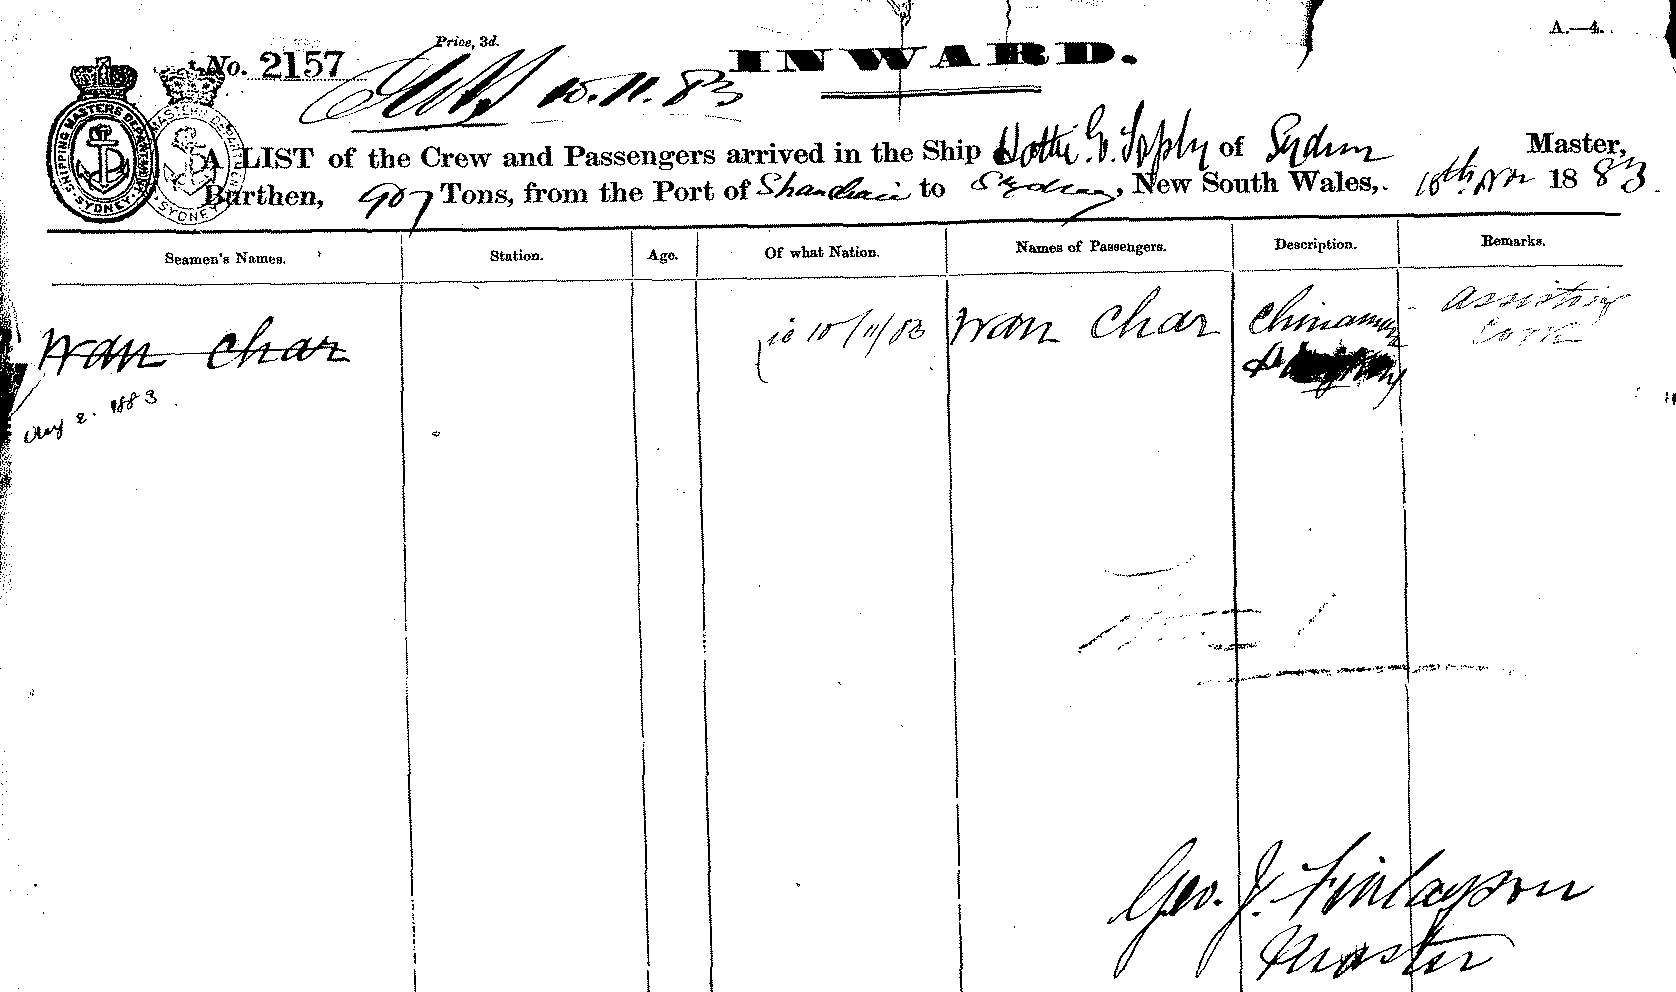 A.—4.
Price, 3d.
No. 2157
INWARD.
10.11.83
SHIPPING MASTERS DEPARTMENT SYDNEY
A LIST of the Crew and Passengers arrived in the Ship Hattie of Sydney Master,
Burthen, 907 Tons, from the Port of Shanghai to Sydney, New South Wales, 10th Nov 1883.
Seamen's Names. Station. Age. Of what Nation. Names of Passengers. Description. Remarks.
Wan Char 10/11/83 Wan Char Chinaman assisting cook
2. 1883
Geo. J. Finlayson
Master